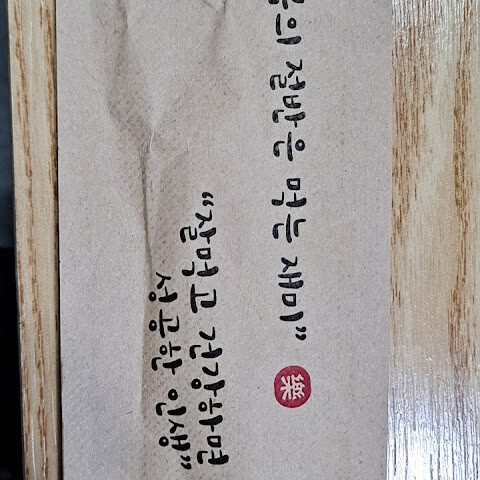 의 절반은 먹는 재미”
樂
“잘먹고 건강하면
성공한 인생”